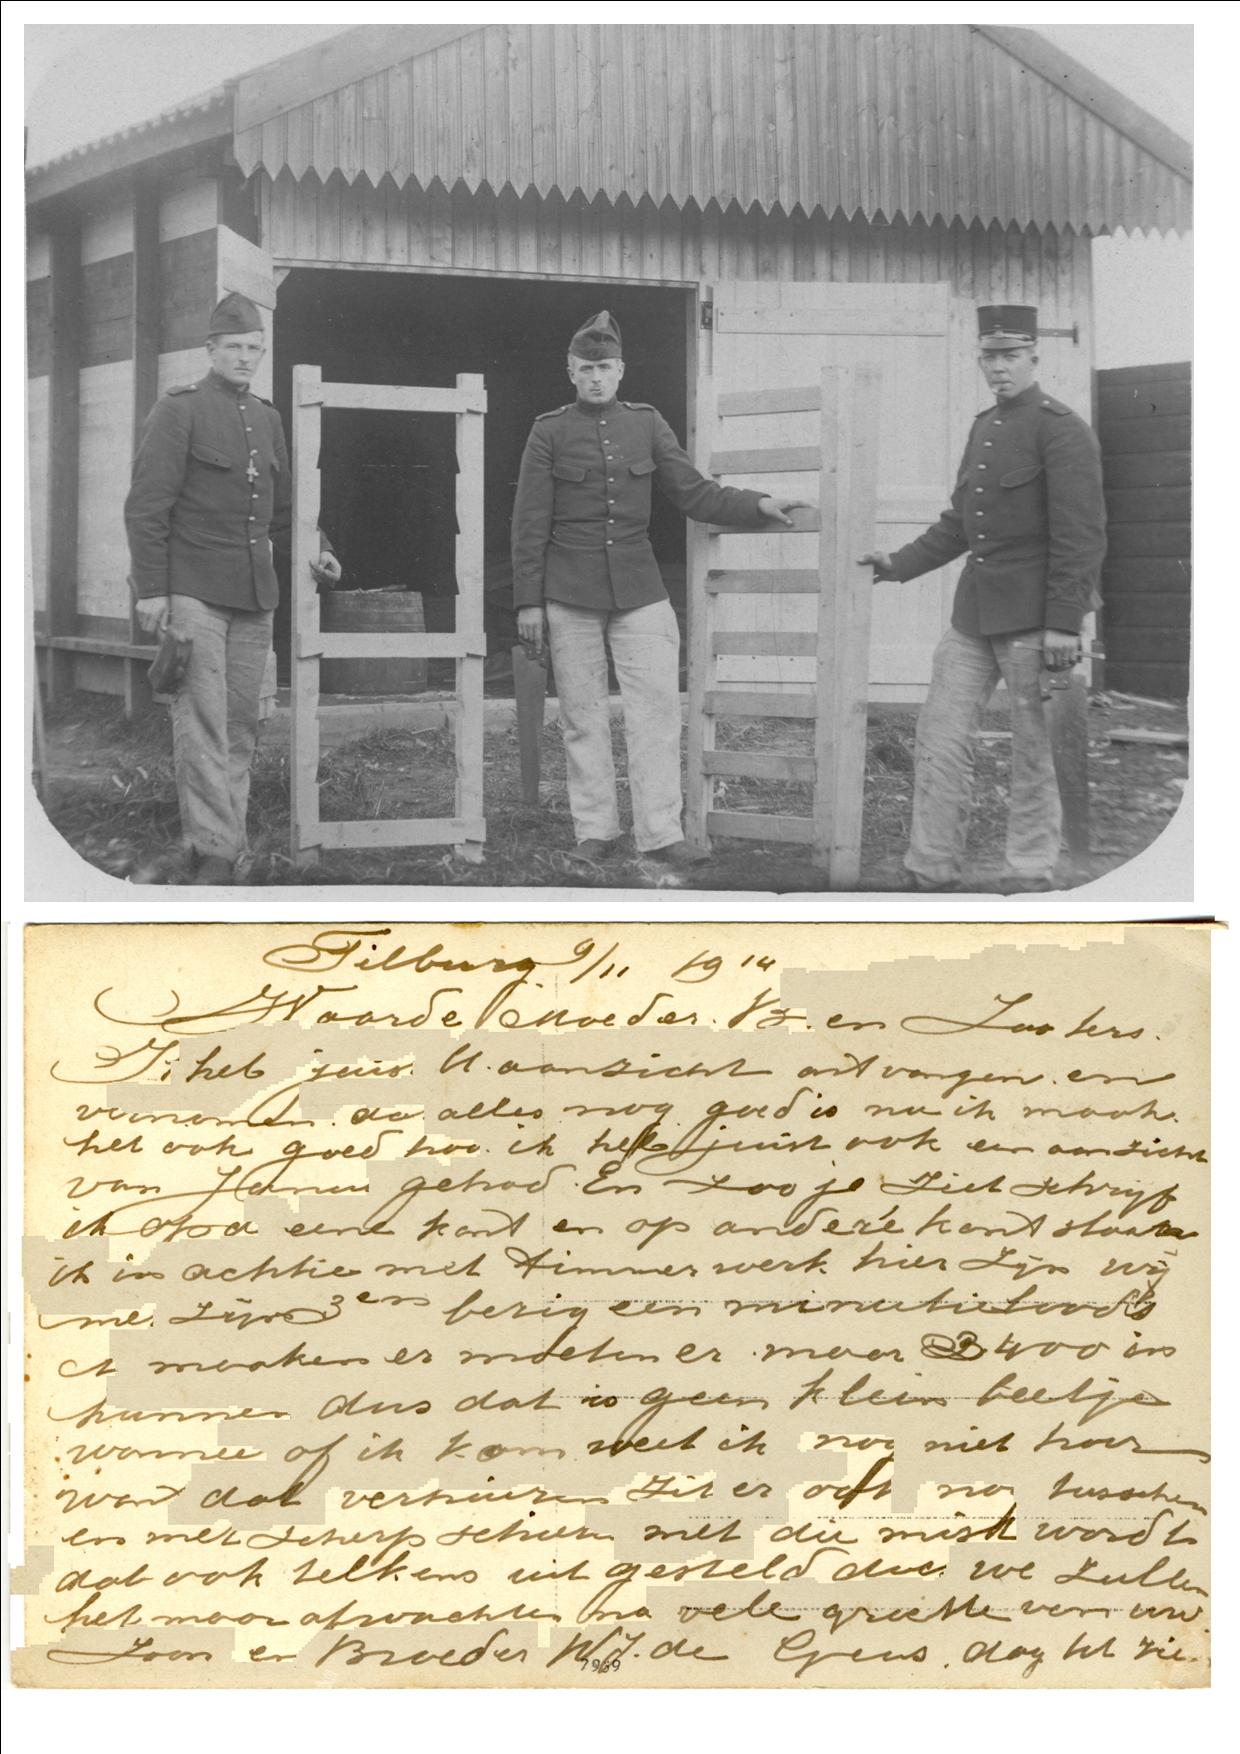 Tilburg 9/11 1914
Waarde Moeder. Br. en Zusters.
Ik heb juis U aanzicht ontvangen en
vernomen da alles nog goed is nu ik maak
het ook goed hoo ik heb juist ook een aanzicht
van Janus gehad. En zoo je ziet schryf
ik op d eene kant en op andere kant staan
ik in achtie met timmerwerk hier zyn wy
me zyn 3en bezig een minutieloods
t maaken er moeten er maar 3400 in
kunnen dus dat is geen klein beetje
wannee of ik kom weet ik nog niet hoor
want dat verhuizen zit er ook no tusschen
en met scherp schieten met die mist wordt
dat ook telkens uit gesteld dus we zullen
het maar afwachten na vele groette van uw
Zoon en Broeder W.J. de Geus. dag tot zie
7969